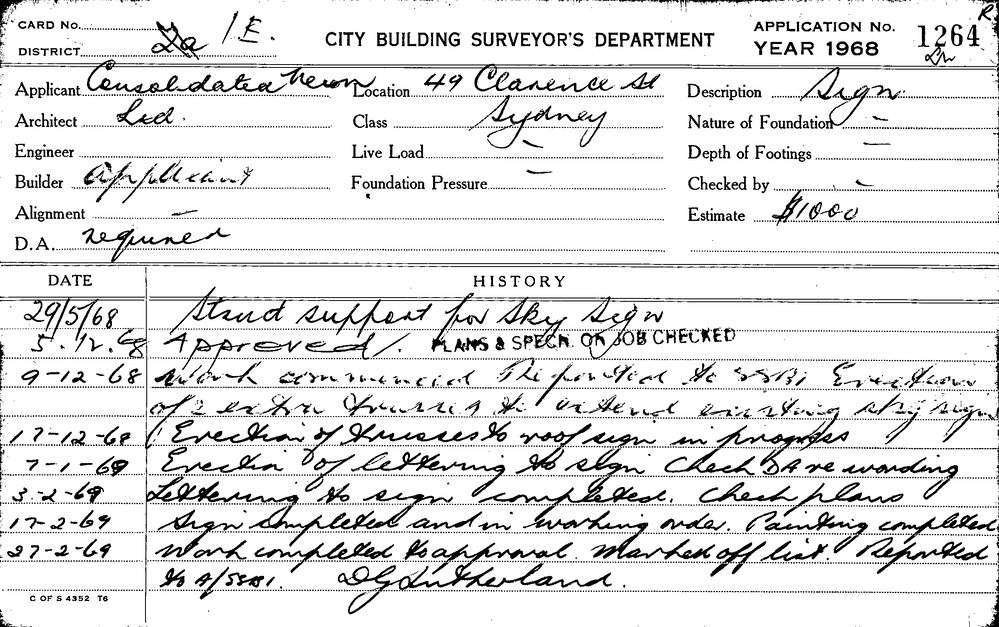 CARD No.
DISTRICT 2a 1E.
CITY BUILDING SURVEYOR'S DEPARTMENT
APPLICATION No. 1264
YEAR 1968
R
Applicant Consolidated Neon Location 49 Clarence St Description Sign
Architect Ltd. Class Sydney Nature of Foundation —
Engineer Live Load — Depth of Footings —
Builder applicant Foundation Pressure — Checked by —
Alignment — Estimate $1000
D.A. required
DATE HISTORY
29/5/68 Strud support for sky sign
5.12.68 Approved. PLANS & SPECN. ON JOB CHECKED
9-12-68 Work commenced Reported to SSBI Erection
of 2 extra trusses to extend existing sky sign
17-12-68 Erection of trusses to roof sign in progress
7-1-69 Erection of lettering to sign Check DA re wording
3-2-69 Lettering to sign completed. Check plans
17-2-69 Sign completed and in working order. Painting completed
27-2-69 Work completed to approval. Marked off list. Reported
to A/SSBI. DG Sutherland.
C OF S 4352 T6